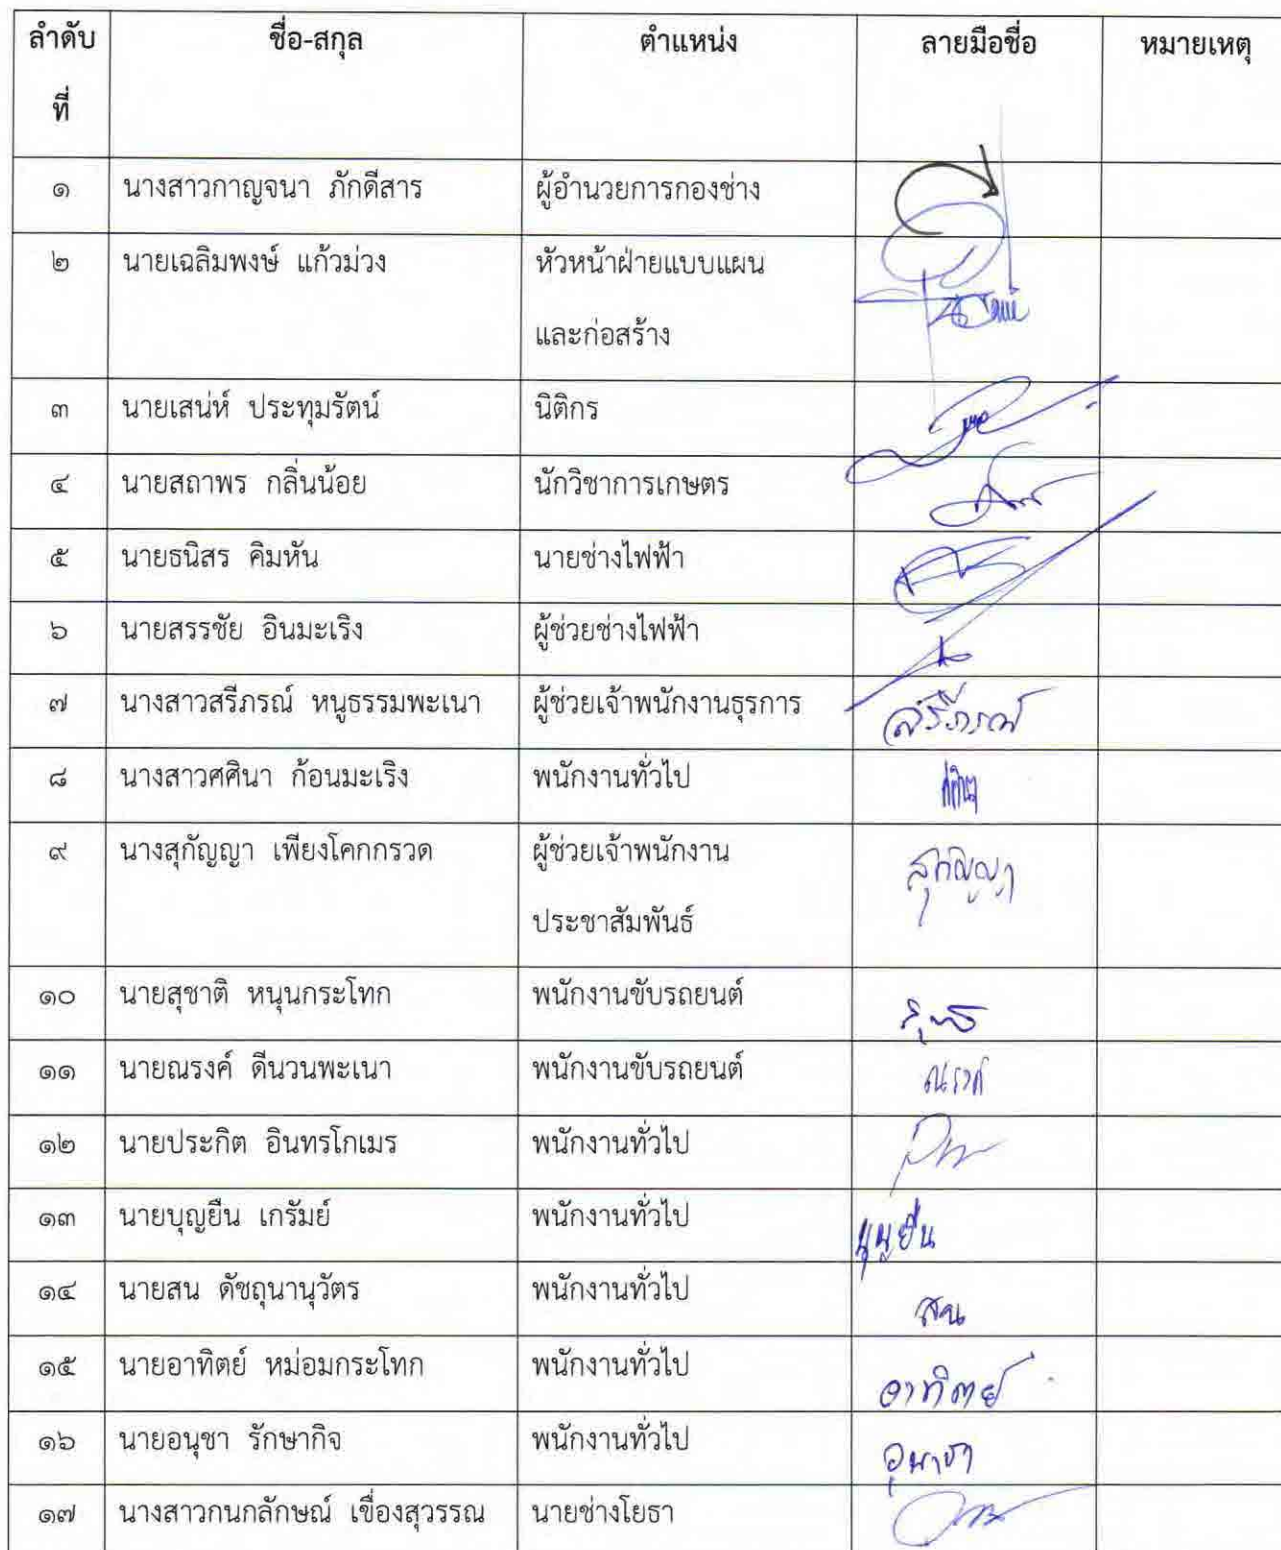 ลำดับ ชื่อ-สกุล ตำแหน่ง ลายมือชื่อ หมายเหตุ
ที่
๑ นางสาวกาญจนา ภักดีสาร ผู้อำนวยการกองช่าง
๒ นายเฉลิมพงษ์ แก้วม่วง หัวหน้าฝ่ายแบบแผน
และก่อสร้าง
๓ นายเสน่ห์ ประทุมรัตน์ นิติกร
๔ นายสถาพร กลิ่นน้อย นักวิชาการเกษตร
๕ นายธนิสร คิมหัน นายช่างไฟฟ้า
๖ นายสรรชัย อินมะเริง ผู้ช่วยช่างไฟฟ้า
๗ นางสาวสรีภรณ์ หนูธรรมพะเนา ผู้ช่วยเจ้าพนักงานธุรการ สรีภรณ์
๘ นางสาวศศินา ก้อนมะเริง พนักงานทั่วไป
๙ นางสุกัญญา เพียงโคกกรวด ผู้ช่วยเจ้าพนักงาน สุกัญญา
ประชาสัมพันธ์
๑๐ นายสุชาติ หนุนกระโทก พนักงานขับรถยนต์
๑๑ นายณรงค์ ดีนวนพะเนา พนักงานขับรถยนต์ ณรงค์
๑๒ นายประกิต อินทรโกเมร พนักงานทั่วไป
๑๓ นายบุญยืน เกรัมย์ พนักงานทั่วไป บุญยืน
๑๔ นายสน ดัชถุนานุวัตร พนักงานทั่วไป สน
๑๕ นายอาทิตย์ หม่อมกระโทก พนักงานทั่วไป อาทิตย์
๑๖ นายอนุชา รักษากิจ พนักงานทั่วไป
๑๗ นางสาวกนกลักษณ์ เขื่องสุวรรณ นายช่างโยธา